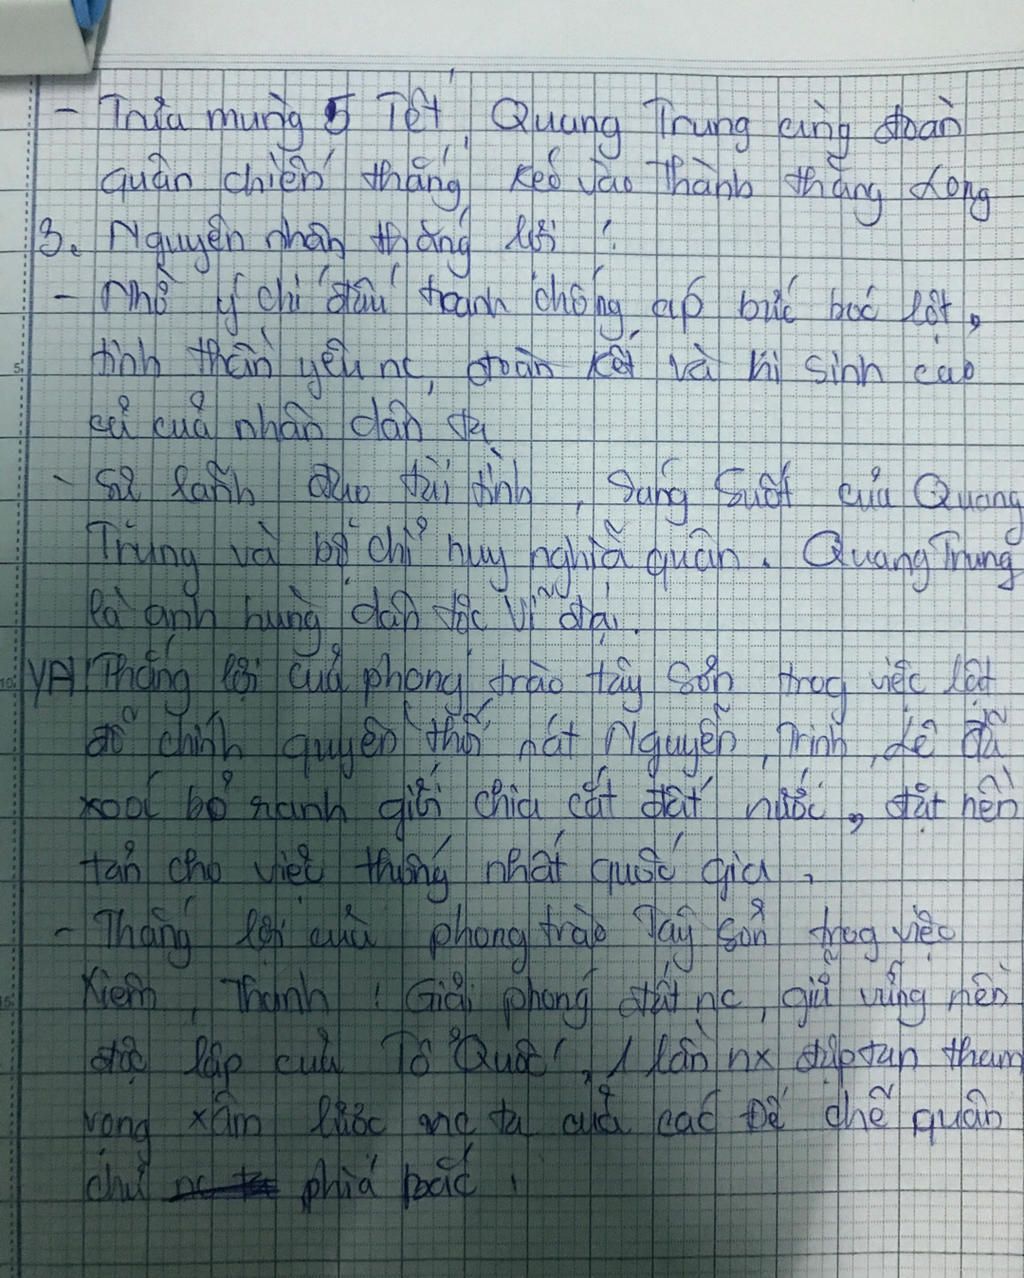 - Trưa mùng 5 Tết, Quang Trung cùng đoàn
quân chiến thắng kéo vào thành thăng Long
3. Nguyên nhân thắng lợi :
- Nhờ ý chí đấu tranh chống áp bức bóc lột,
tinh thần yêu nc, đoàn kết và hi sinh cao
cả của nhân dân ta
- Sự lãnh đạo tài tình, sáng suốt của Quang
Trung và bộ chỉ huy nghĩa quân. Quang Trung
là anh hùng dân tộc vĩ đại.
YN Thắng lợi của phong trào tây Sơn trog việc lật
đổ chính quyền thối nát Nguyễn, Trịnh, Lê đã
xoá bỏ ranh giới chia cắt đất nước, đặt nền
tản cho việc thống nhất quốc gia.
- Thắng lợi của phong trào Tây Sơn trog việc
Xiêm, Thanh : Giải phóng đất nc, giữ vững nền
độc lập của Tổ Quốc, 1 lần nx đập tan tham
vọng xâm lược nc ta của các Đế chế quân
chủ phía bắc.